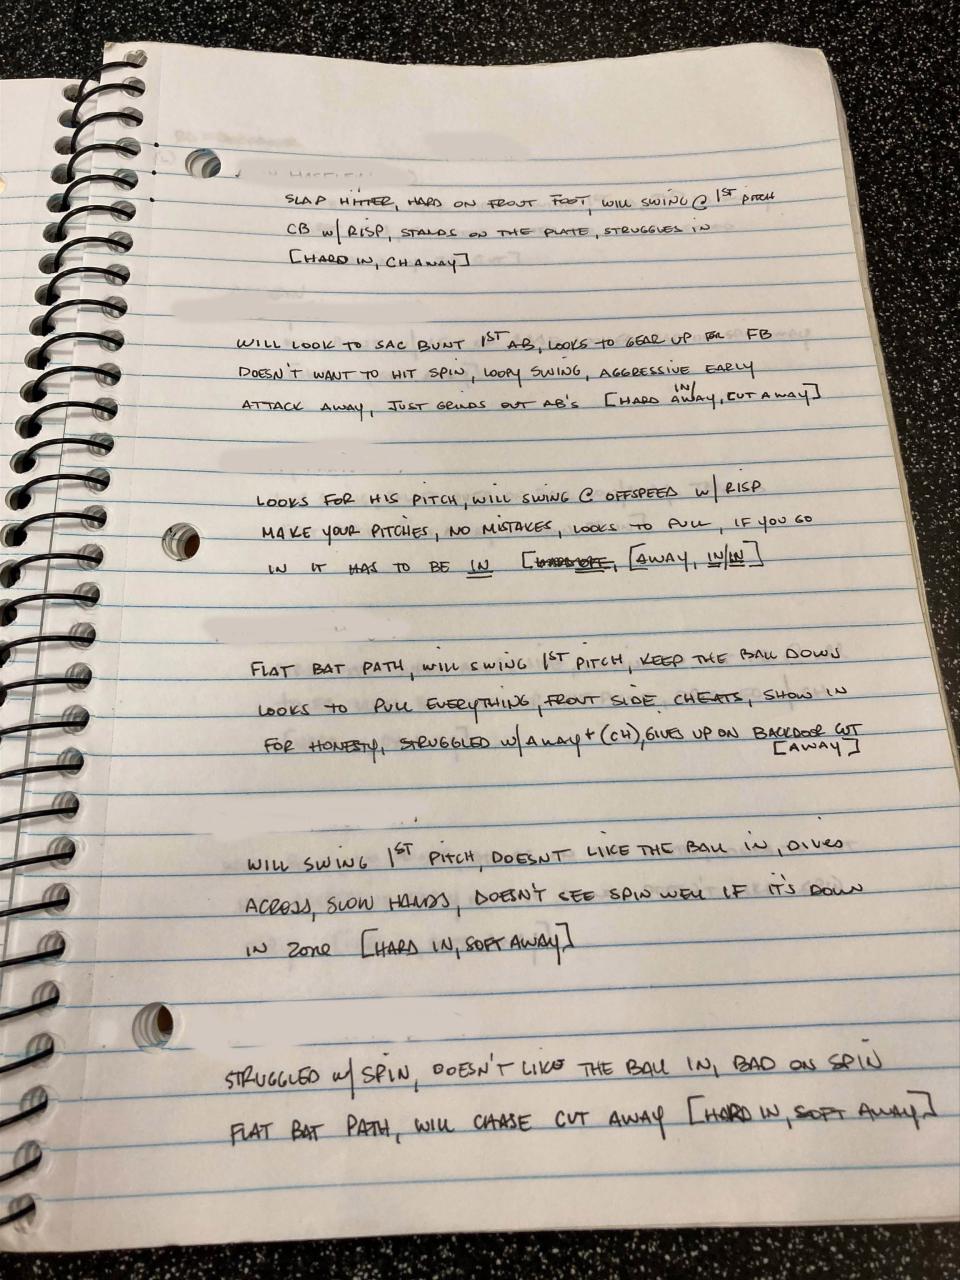 SLAP HITTER, HARD ON FRONT FOOT, WILL SWING @ 1ST PITCH
CB w/ RISP, STANDS ON THE PLATE, STRUGGLES IN
[HARD IN, CH AWAY]
WILL LOOK TO SAC BUNT 1ST AB, LOOKS TO GEAR UP FOR FB
DOESN'T WANT TO HIT SPIN, LOOPY SWING, AGGRESSIVE EARLY
ATTACK AWAY, JUST GRINDS OUT AB'S [HARD IN/AWAY, CUT AWAY]
LOOKS FOR HIS PITCH, WILL SWING @ OFFSPEED w/ RISP
MAKE YOUR PITCHES, NO MISTAKES, LOOKS TO PULL, IF YOU GO
IN IT HAS TO BE IN [AWAY, IN/IN]
FLAT BAT PATH, WILL SWING 1ST PITCH, KEEP THE BALL DOWN
LOOKS TO PULL EVERYTHING, FRONT SIDE CHEATS, SHOW IN
FOR HONESTY, STRUGGLED w/ AWAY + (CH), GIVES UP ON BACKDOOR CUT
[AWAY]
WILL SWING 1ST PITCH, DOESNT LIKE THE BALL IN, DIVES
ACROSS, SLOW HANDS, DOESN'T SEE SPIN WELL IF IT'S DOWN
IN ZONE [HARD IN, SOFT AWAY]
STRUGGLED w/ SPIN, DOESN'T LIKE THE BALL IN, BAD ON SPIN
FLAT BAT PATH, WILL CHASE CUT AWAY [HARD IN, SOFT AWAY]